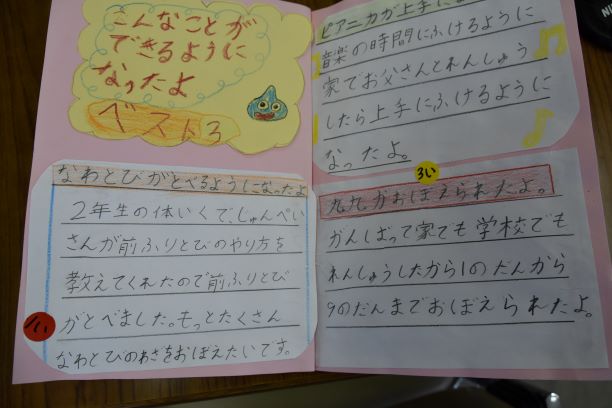 こんなことが
できるように
なったよ
ベスト3
なわとびがとべるようになったよ
2年生の体いくで、しゅんぺい
さんが前ふりとびのやり方を
教えてくれたので前ふりとび
がとべました。もっとたくさん
なわとびのわざをおぼえたいです。
1い
ピアニカが上手に
音楽の時間にふけるように
家でお父さんとれんしゅう
したら上手にふけるように
なったよ。
3い
九九がおぼえられたよ。
がんばって家でも学校でも
れんしゅうしたから1のだんから
9のだんまでおぼえられたよ。